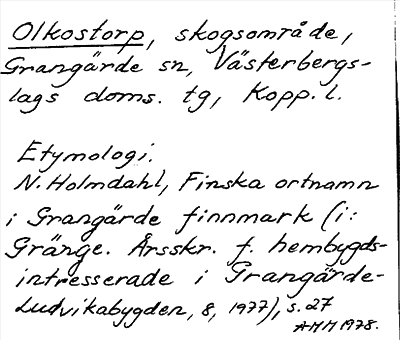 Olkostorp, skogsområde,
Grangärde sn, Västerbergs-
lags doms. tg, Kopp. l.
Etymologi.
N. Holmdahl, Finska ortnamn
i Grangärde finnmark (i:
Gränge. Årsskr. f. hembygds-
intresserade i Grangärde-
Ludvikabygden, 8, 1977), s. 27
AMM 1978.